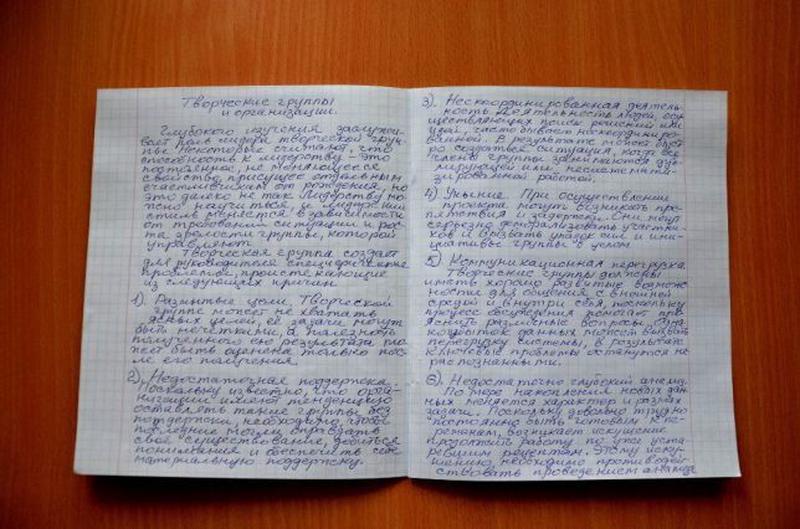 Творческие группы
и организации.
Глубокого изучения заслужи-
вает роль лидера творческой груп-
пы. Некоторые считают, что
способность к лидерству – это
постоянное, не меняющееся
свойство, присущее отдельным
счастливчикам от рождения, но
это далеко не так. Лидерству мо-
жно научиться, и лидерский
стиль меняется в зависимости
от требований ситуации и рос-
та зрелости группы, которой
управляют.
Творческая группа создает
для руководителя специфические
проблемы, проистекающие
из следующих причин.
1). Размытые цели. Творческой
группе может не хватать
ясных целей, её задачи могут
быть нечеткими, а полезность
полученного ею результата мо-
жет быть оценена только пос-
ле его получения.
2). Недостаточная поддержка.
Поскольку известно, что орга-
низации имеют тенденцию
оставлять такие группы без
поддержки, необходимо, чтобы
последние могли оправдать
свое существование, добиться
понимания и обеспечить себе
материальную поддержку.
3). Нескоординированная деятель-
ность. Деятельность людей, осу-
ществляющих поиск решений или
идей, часто бывает нескоординиро-
ванной. В результате может быст-
ро создаться ситуация, когда все
члены группы занимаются дуб-
лирующей или несистемати-
зированной работой.
4) Уныние. При осуществлении
проекта могут возникать пре-
пятствия и задержки. Они могут
серьезно деморализовать участни-
ков и вызвать упадок сил и ини-
циативы группы в целом.
5) Коммуникационная перегрузка.
Творческие группы должны
иметь хорошо развитые возмож-
ности для общения с внешней
средой и внутри себя, поскольку
процесс обсуждения помогает про-
яснить различные вопросы. Одна-
ко избыток данных может вызвать
перегрузку системы, в результате
ключевые проблемы останутся не-
распознанными.
6). Недостаточно глубокий анализ.
По мере накопления новых дан-
ных меняется характер и размах
задачи. Поскольку довольно трудно
постоянно быть готовым к пе-
ременам, возникает искушение
продолжить работу по уже уста-
ревшим рецептам. Этому иску-
шению необходимо противодей-
ствовать проведением анализа